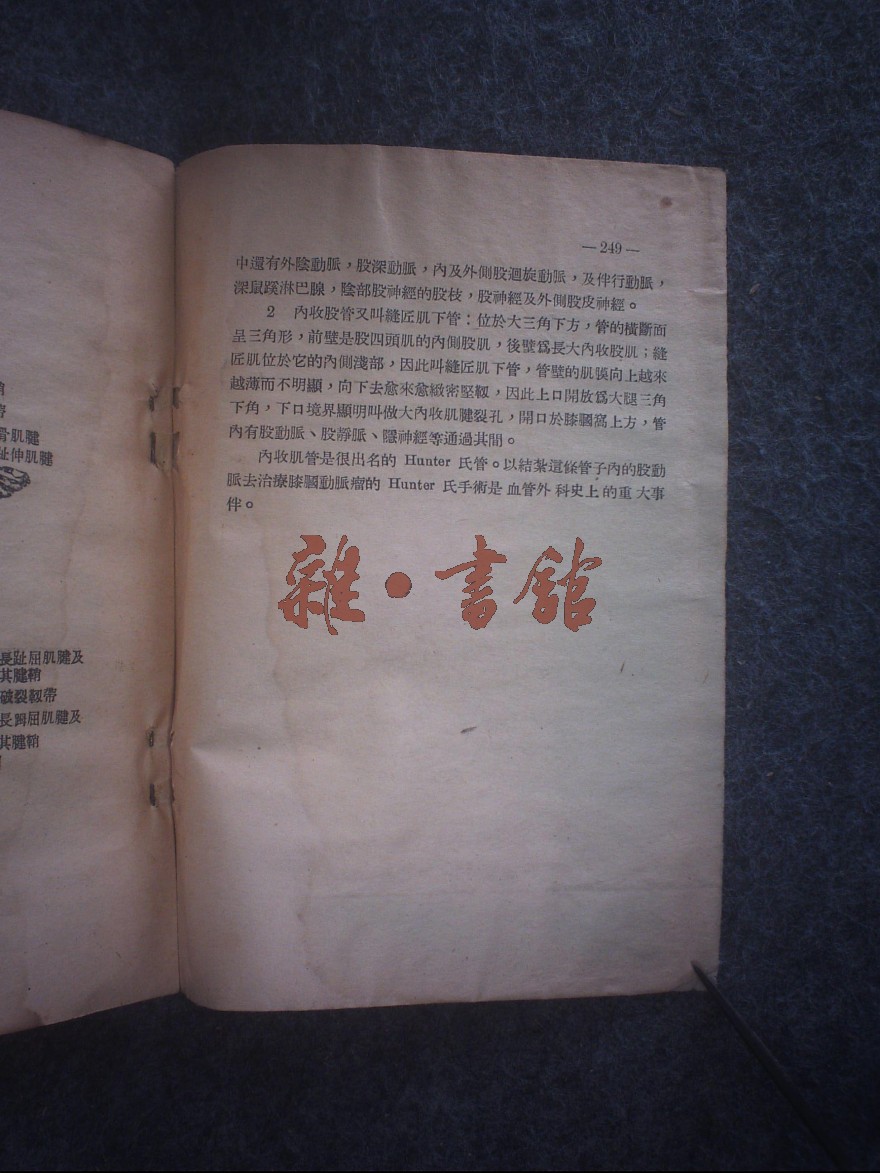 骨肌腱
趾伸肌腱
長趾屈肌腱及
其腱鞘
破裂韌帶
長𧿹屈肌腱及
其腱鞘
—249—
中還有外陰動脈，股深動脈，內及外側股迴旋動脈，及伴行動脈，
深鼠蹊淋巴腺，陰部股神經的股枝，股神經及外側股皮神經。
2 內收股管又叫縫匠肌下管：位於大三角下方，管的橫斷面
呈三角形，前壁是股四頭肌的內側股肌，後壁爲長大內收股肌；縫
匠肌位於它的內側淺部，因此叫縫匠肌下管，管壁的肌膜向上越來
越薄而不明顯，向下去愈來愈緻密堅韌，因此上口開放爲大腿三角
下角，下口境界顯明叫做大內收肌腱裂孔，開口於膝膕窩上方，管
內有股動脈、股靜脈、隱神經等通過其間。
內收肌管是很出名的 Hunter 氏管。以結紮這條管子內的股動
脈去治療膝膕動脈瘤的 Hunter 氏手術是血管外科史上的重大事
件。
雜·書館